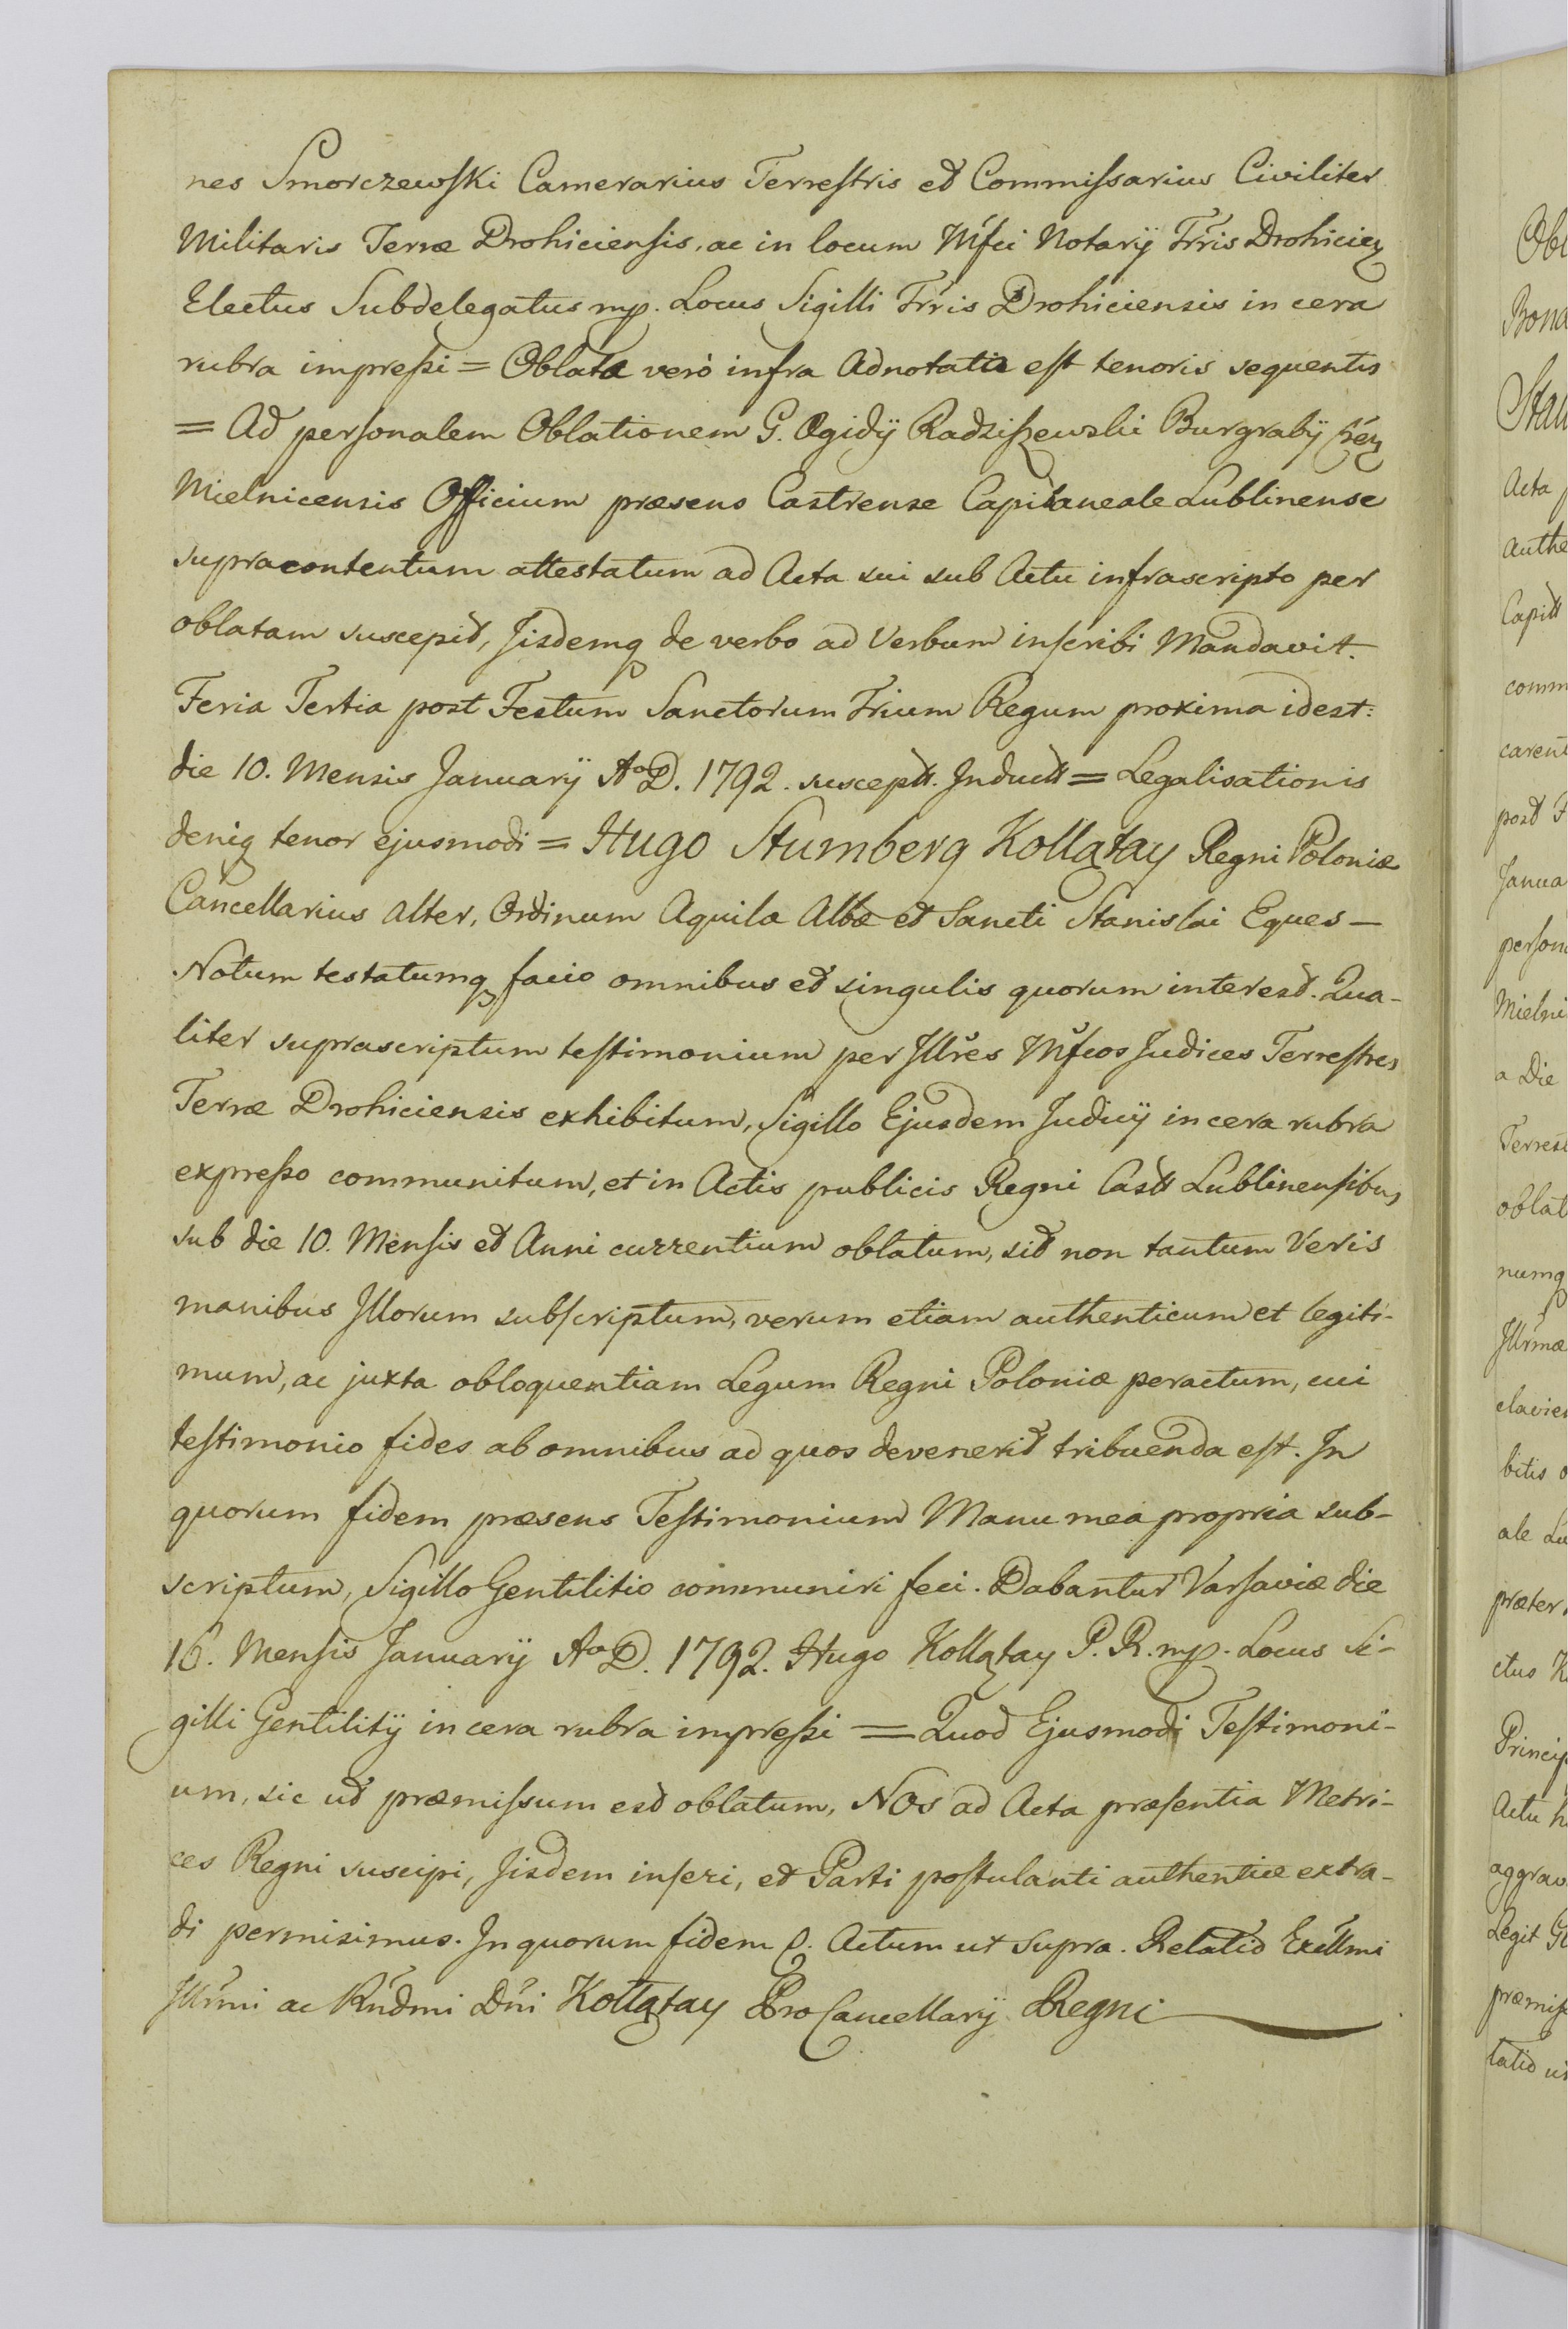 nes Smorczewski Camerarius Terrestris et Commissarius Civiliter
Militaris Terræ Drohiciensis, ac in locum Mfci Notarij Trris Drohicien
Electus Subdelegatus mp. Locus Sigilli Trris Drohiciensis in cera
rubra impressi = Oblata verò infra Adnotata est tenoris sequentis
= Ad personalem Oblationem G. Ægidij Radziszewski Burgrabij
Mielnicensis Officium præsens Castrense Capitaneale Lublinense
supracontentum attestatum ad Acta sui sub Actu infrascripto per
oblatam suscepit, Jisdemq de verbo ad Verbum inscribi Mandavit.
Feria Tertia post Festum Sanctorum Trium Regum proxima idest:
die 10. Mensis Januarij Ao D. 1792. suscept. Induct = Legalisationis
deniq tenor ejusmodi = Hugo Stumberg Kollątay Regni Poloniæ
Cancellarius alter, Ordinum Aquilæ Albæ et Sancti Stanislai Eques —
Notum testatumq facio omnibus et singulis quorum interest. Qua-
liter suprascriptum testimonium per Illres Mfcos Judices Terrestres
Terræ Drohiciensis exhibitum, Sigillo Ejusdem Judicij in cera rubra
expresso communitum, et in Actis publicis Regni Castt Lublinensibus
sub die 10. Mensis et Anni currentium oblatum, sit non tantum Veris
manibus Illorum subscriptum, verum etiam authenticum et legiti-
mum, ac juxta obloquentiam Legum Regni Poloniæ peractum, cui
testimonio fides ab omnibus ad quos devenerit tribuenda est. In
quorum fidem præsens Testimonium Manu mea propria sub-
scriptum, Sigillo Gentilitio communiri feci. Dabantur Varsaviæ die
16. Mensis Januarij Ao D. 1792. Hugo Kollątay P. R. mp. Locus Si-
gilli Gentilitij in cera rubra impressi = Quod Ejusmodi Testimoni-
um, sic ut præmissum est oblatum, Nos ad Acta præsentia Metri-
ces Regni suscipi, Jisdem inseri, et Parti postulanti authentice extra-
di permisimus. In quorum fidem p. Actum ut supra. Relatio Excllmi
Illrmi ac Rndmi Dni Kollątay ProCancellarij Regni
Obl
Bona
Stan
Acta
authe
Capitt
comm
carent
post F
Janua
person
Mielni
a Die
Terrest
oblat
numq
Illrmæ
clavien
bitis o
ale Lu
præter
ctus K
Princip
Actu h
aggrav
Legit G
præmiss
latio ut